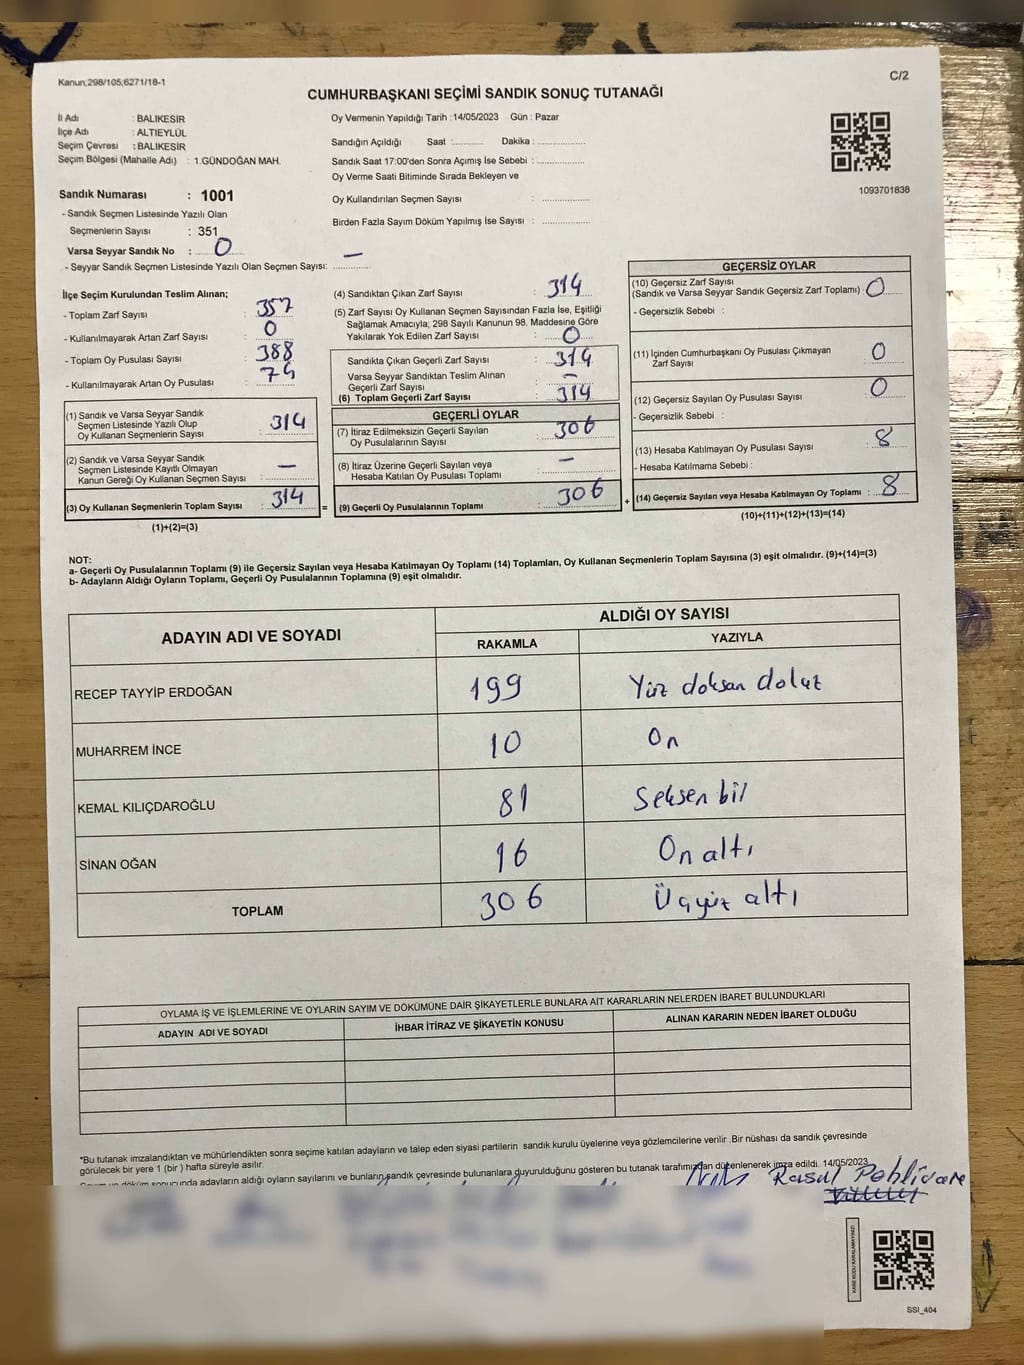 Kanun;298/105;6271/18-1
C/2
CUMHURBAŞKANI SEÇİMİ SANDIK SONUÇ TUTANAĞI
İl Adı : BALIKESİR
İlçe Adı : ALTIEYLÜL
Seçim Çevresi : BALIKESİR
Seçim Bölgesi (Mahalle Adı) : 1.GÜNDOĞAN MAH.
Sandık Numarası : 1001
- Sandık Seçmen Listesinde Yazılı Olan
Seçmenlerin Sayısı : 351
Varsa Seyyar Sandık No : 0
- Seyyar Sandık Seçmen Listesinde Yazılı Olan Seçmen Sayısı: —
Oy Vermenin Yapıldığı Tarih :14/05/2023 Gün : Pazar
Sandığın Açıldığı Saat :........... Dakika :.................
Sandık Saat 17:00'den Sonra Açımış İse Sebebi :.................
Oy Verme Saati Bitiminde Sırada Bekleyen ve
Oy Kullandırılan Seçmen Sayısı : .................
Birden Fazla Sayım Döküm Yapılmış İse Sayısı : .................
1093701838
İlçe Seçim Kurulundan Teslim Alınan;
- Toplam Zarf Sayısı : 357
- Kullanılmayarak Artan Zarf Sayısı : 0
- Toplam Oy Pusulası Sayısı : 388
- Kullanılmayarak Artan Oy Pusulası : 74
(1) Sandık ve Varsa Seyyar Sandık
Seçmen Listesinde Yazılı Olup
Oy Kullanan Seçmenlerin Sayısı : 314
(2) Sandık ve Varsa Seyyar Sandık
Seçmen Listesinde Kayıtlı Olmayan
Kanun Gereği Oy Kullanan Seçmen Sayısı : —
(3) Oy Kullanan Seçmenlerin Toplam Sayısı : 314
(1)+(2)=(3)
=
(4) Sandıktan Çıkan Zarf Sayısı : 314
(5) Zarf Sayısı Oy Kullanan Seçmen Sayısından Fazla İse, Eşitliği
Sağlamak Amacıyla; 298 Sayılı Kanunun 98. Maddesine Göre
Yakılarak Yok Edilen Zarf Sayısı : 0
Sandıkta Çıkan Geçerli Zarf Sayısı : 314
Varsa Seyyar Sandıktan Teslim Alınan
Geçerli Zarf Sayısı : —
(6) Toplam Geçerli Zarf Sayısı : 314
GEÇERLİ OYLAR
(7) İtiraz Edilmeksizin Geçerli Sayılan
Oy Pusulalarının Sayısı : 306
(8) İtiraz Üzerine Geçerli Sayılan veya
Hesaba Katılan Oy Pusulası Toplamı : —
(9) Geçerli Oy Pusulalarının Toplamı : 306
+
GEÇERSİZ OYLAR
(10) Geçersiz Zarf Sayısı
(Sandık ve Varsa Seyyar Sandık Geçersiz Zarf Toplamı) : 0
- Geçersizlik Sebebi :
(11) İçinden Cumhurbaşkanı Oy Pusulası Çıkmayan
Zarf Sayısı : 0
(12) Geçersiz Sayılan Oy Pusulası Sayısı : 0
- Geçersizlik Sebebi :
(13) Hesaba Katılmayan Oy Pusulası Sayısı : 8
- Hesaba Katılmama Sebebi :
(14) Geçersiz Sayılan veya Hesaba Katılmayan Oy Toplamı : 8
(10)+(11)+(12)+(13)=(14)
NOT:
a- Geçerli Oy Pusulalarının Toplamı (9) ile Geçersiz Sayılan veya Hesaba Katılmayan Oy Toplamı (14) Toplamları, Oy Kullanan Seçmenlerin Toplam Sayısına (3) eşit olmalıdır. (9)+(14)=(3)
b- Adayların Aldığı Oyların Toplamı, Geçerli Oy Pusulalarının Toplamına (9) eşit olmalıdır.
ADAYIN ADI VE SOYADI ALDIĞI OY SAYISI
RAKAMLA YAZIYLA
RECEP TAYYİP ERDOĞAN 199 Yüz doksan dokuz
MUHARREM İNCE 10 On
KEMAL KILIÇDAROĞLU 81 Seksen bir
SİNAN OĞAN 16 On altı
TOPLAM 306 Üçyüz altı
OYLAMA İŞ VE İŞLEMLERİNE VE OYLARIN SAYIM VE DÖKÜMÜNE DAİR ŞİKAYETLERLE BUNLARA AİT KARARLARIN NELERDEN İBARET BULUNDUKLARI
ADAYIN ADI VE SOYADI İHBAR İTİRAZ VE ŞİKAYETİN KONUSU ALINAN KARARIN NEDEN İBARET OLDUĞU
*Bu tutanak imzalandıktan ve mühürlendikten sonra seçime katılan adayların ve talep eden siyasi partilerin sandık kurulu üyelerine veya gözlemcilerine verilir .Bir nüshası da sandık çevresinde
görülecek bir yere 1 (bir ) hafta süreyle asılır.
sonucunda adayların aldığı oyların sayılarını ve bunların sandık çevresinde bulunanlara duyurulduğunu gösteren bu tutanak tarafımızdan düzenlenerek imza edildi. 14/05/2023
Rasul Pehlivan
KARE KODU KARALAMAYINIZ!
SSI_404